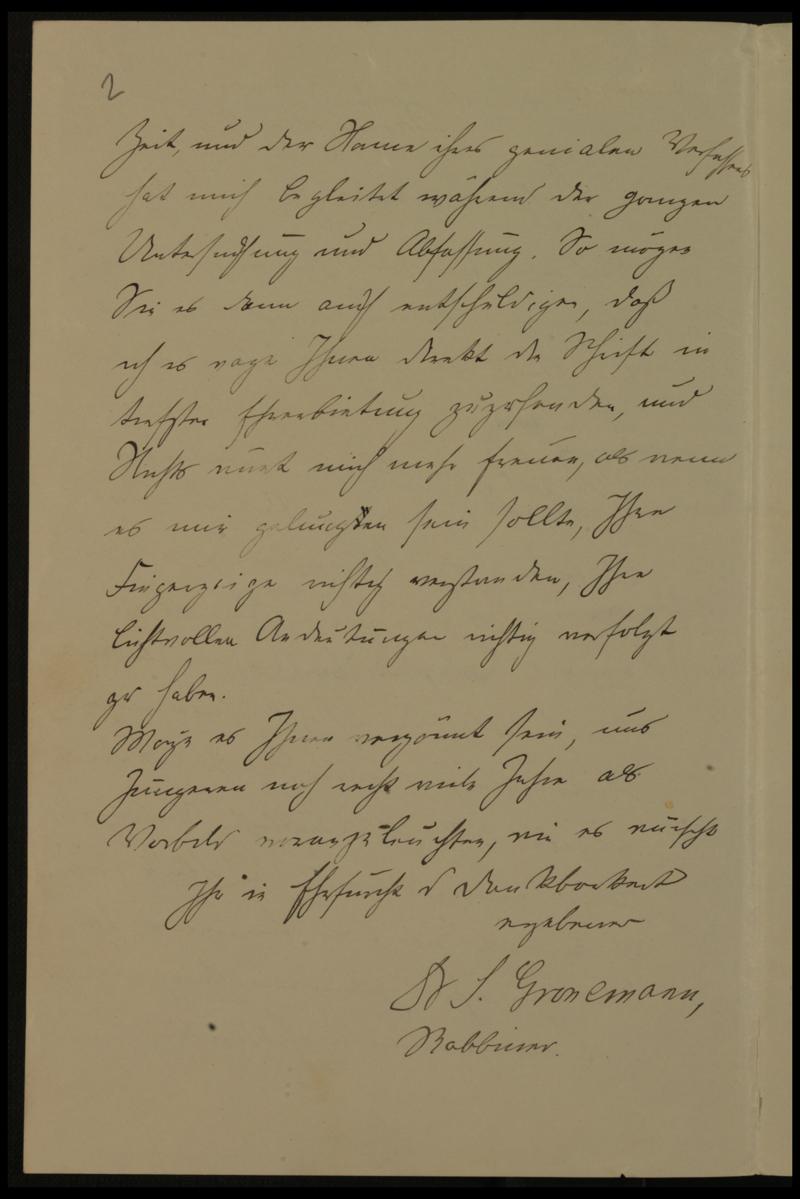 2
Zeit, und der Name ihres genialen Verfassers
hat mich begleitet während der ganzen
Untersuchung und Abfassung. So mögen
Sie es denn auch entschuldigen, daß
ich es wage Ihnen direkt die Schrift in
tiefster Ehrerbietung zuzusenden, und
Nichts wird mich mehr freuen, als wenn
es mir gelungen sein sollte, Ihre
Fingerzeige richtig verstanden, Ihre
lichtvollen Andeutungen richtig verfolgt
zu haben.
Möge es Ihnen vergönnt sein, uns
Jüngeren noch recht viele Jahre als
Vorbild voranzuleuchten, wie es wünscht
Ihr in Ehrfurcht u Dankbarkeit
ergebener
Dr S. Gronemann,
Rabbiner.